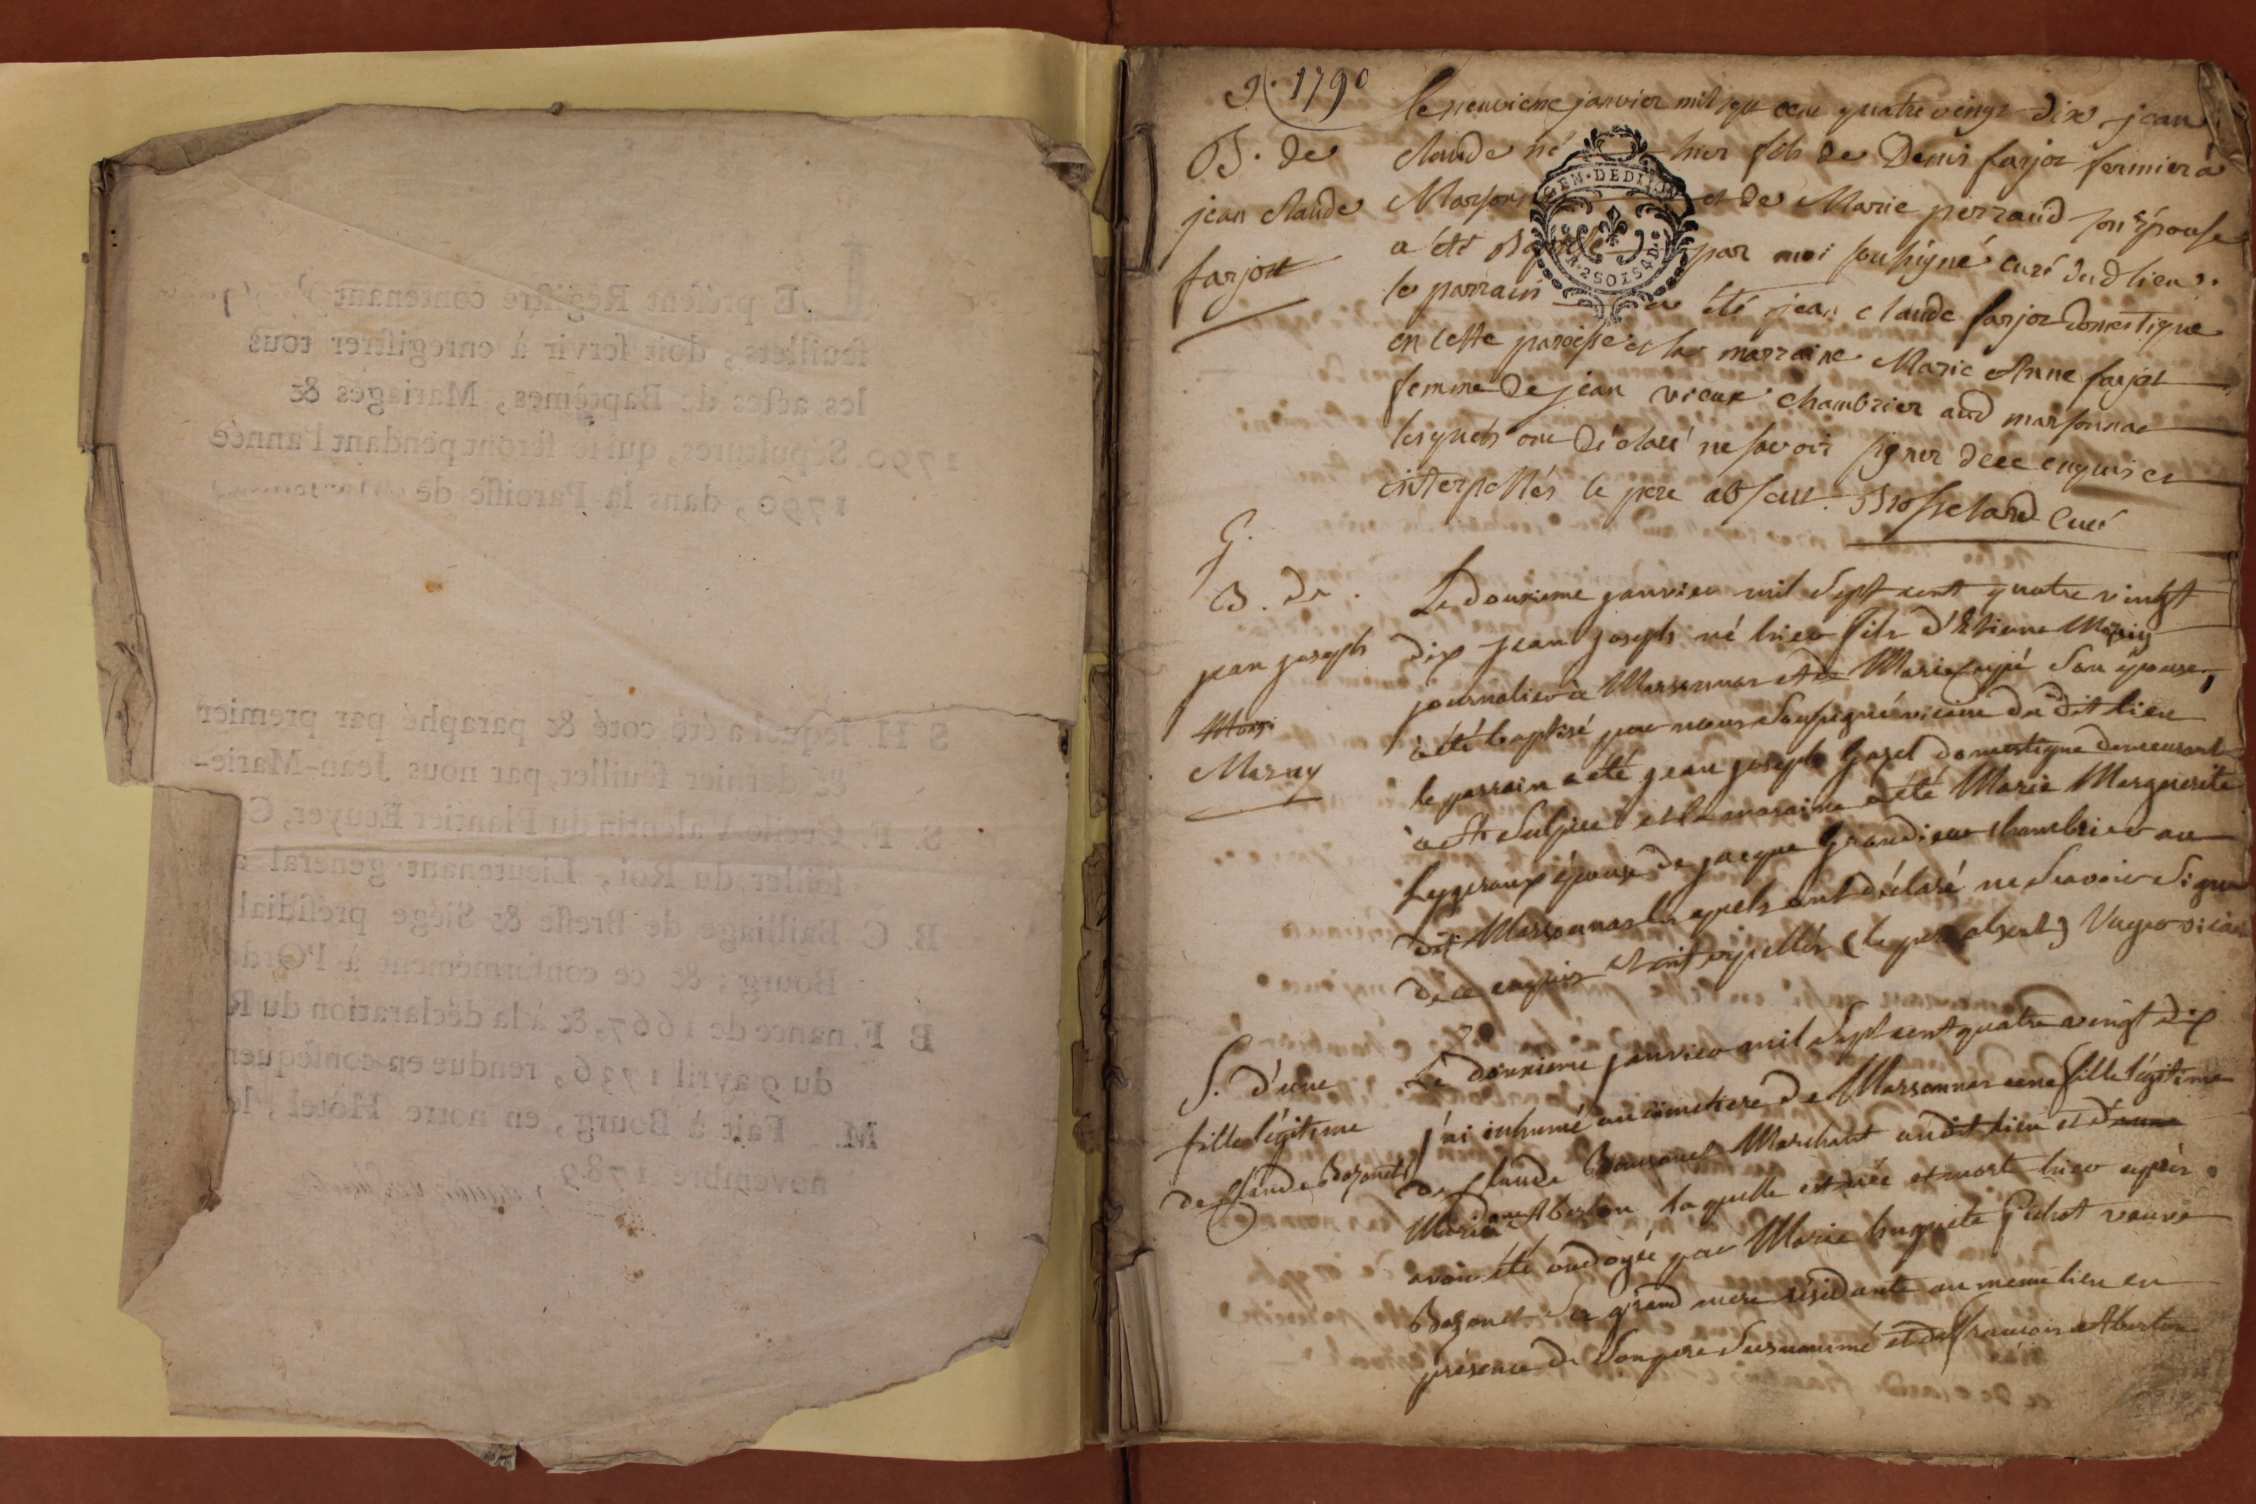 LE présent Régistre contenant
feuillets, doit servir à enregistrer tous
les actes de Baptêmes, Mariages &
1790. Sépultures, qui se feront pendant l'année
1790, dans la Paroisse de
S H. lequel a été coté & paraphé par premier
& dernier feuillet, par nous Jean-Marie-
S. F. Cecile Valentin du Plantier Ecuyer, C
seiller du Roi, Lieutenant general a
B. C Bailliage de Bresse & Siége présidial
Bourg; & ce conformément à l'Ord
B F. nance de 1667, & à la déclaration du R
du 9 avril 1736, rendue en conséquen
M. Fait à Bourg, en notre Hôtel, le
novembre 1789
1790
B. de
jean claude
farjot
le neuvieme janvier mil sept cent quatre vingt dix jean
claude né hier fils de Denis farjot fermier a
Marsonnas et de Marie perraud son épouse
a été Baptisé par moi soussigné curé dud lieu.
le parrain a été jean claude farjot domestique
en cette paroisse et la marraine Marie Anne farjot
femme de jean vieux chambrier aud marsonnas
lesquels ont déclaré ne savoir signer de ce enquis et
interpellés le pere absent. Brosselard Curé
G.
B. de
jean joseph
Mazuy
Le douzieme janvier mil sept cent quatre vingt
dix jean joseph né hier fils d'Etienne Mazuy
journalier à Marsonnas et de Marie son épouse,
à été baptisé par nous soussigné vicaire du dit lieu
le parrain a été jean joseph gazel domestique demeurant
à St Sulpice et la maraine a été Marie Marguerite
épouse de jacque grandieux chambrier au
dit Marsonnas lesquels ont déclaré ne sçavoir signer
de ce enquis et interpellés (le pere absent) vicaire
S. d'une
fille légitime
de Claude Bozonet
Le douzieme janvier mil sept cent quatre vingt dix
j'ai inhumé au cimetiere de Marsonnas une fille légitime
de Claude Bozonet Marchant audit lieu et d'une
Marie Aberton laquelle est née et morte hier après
avoir été ondoyée par Marie huguette Pichot veuve
Bozonet sa grand mere résidante au meme lieu en
présence de son pere susnommé et de françois Aberton